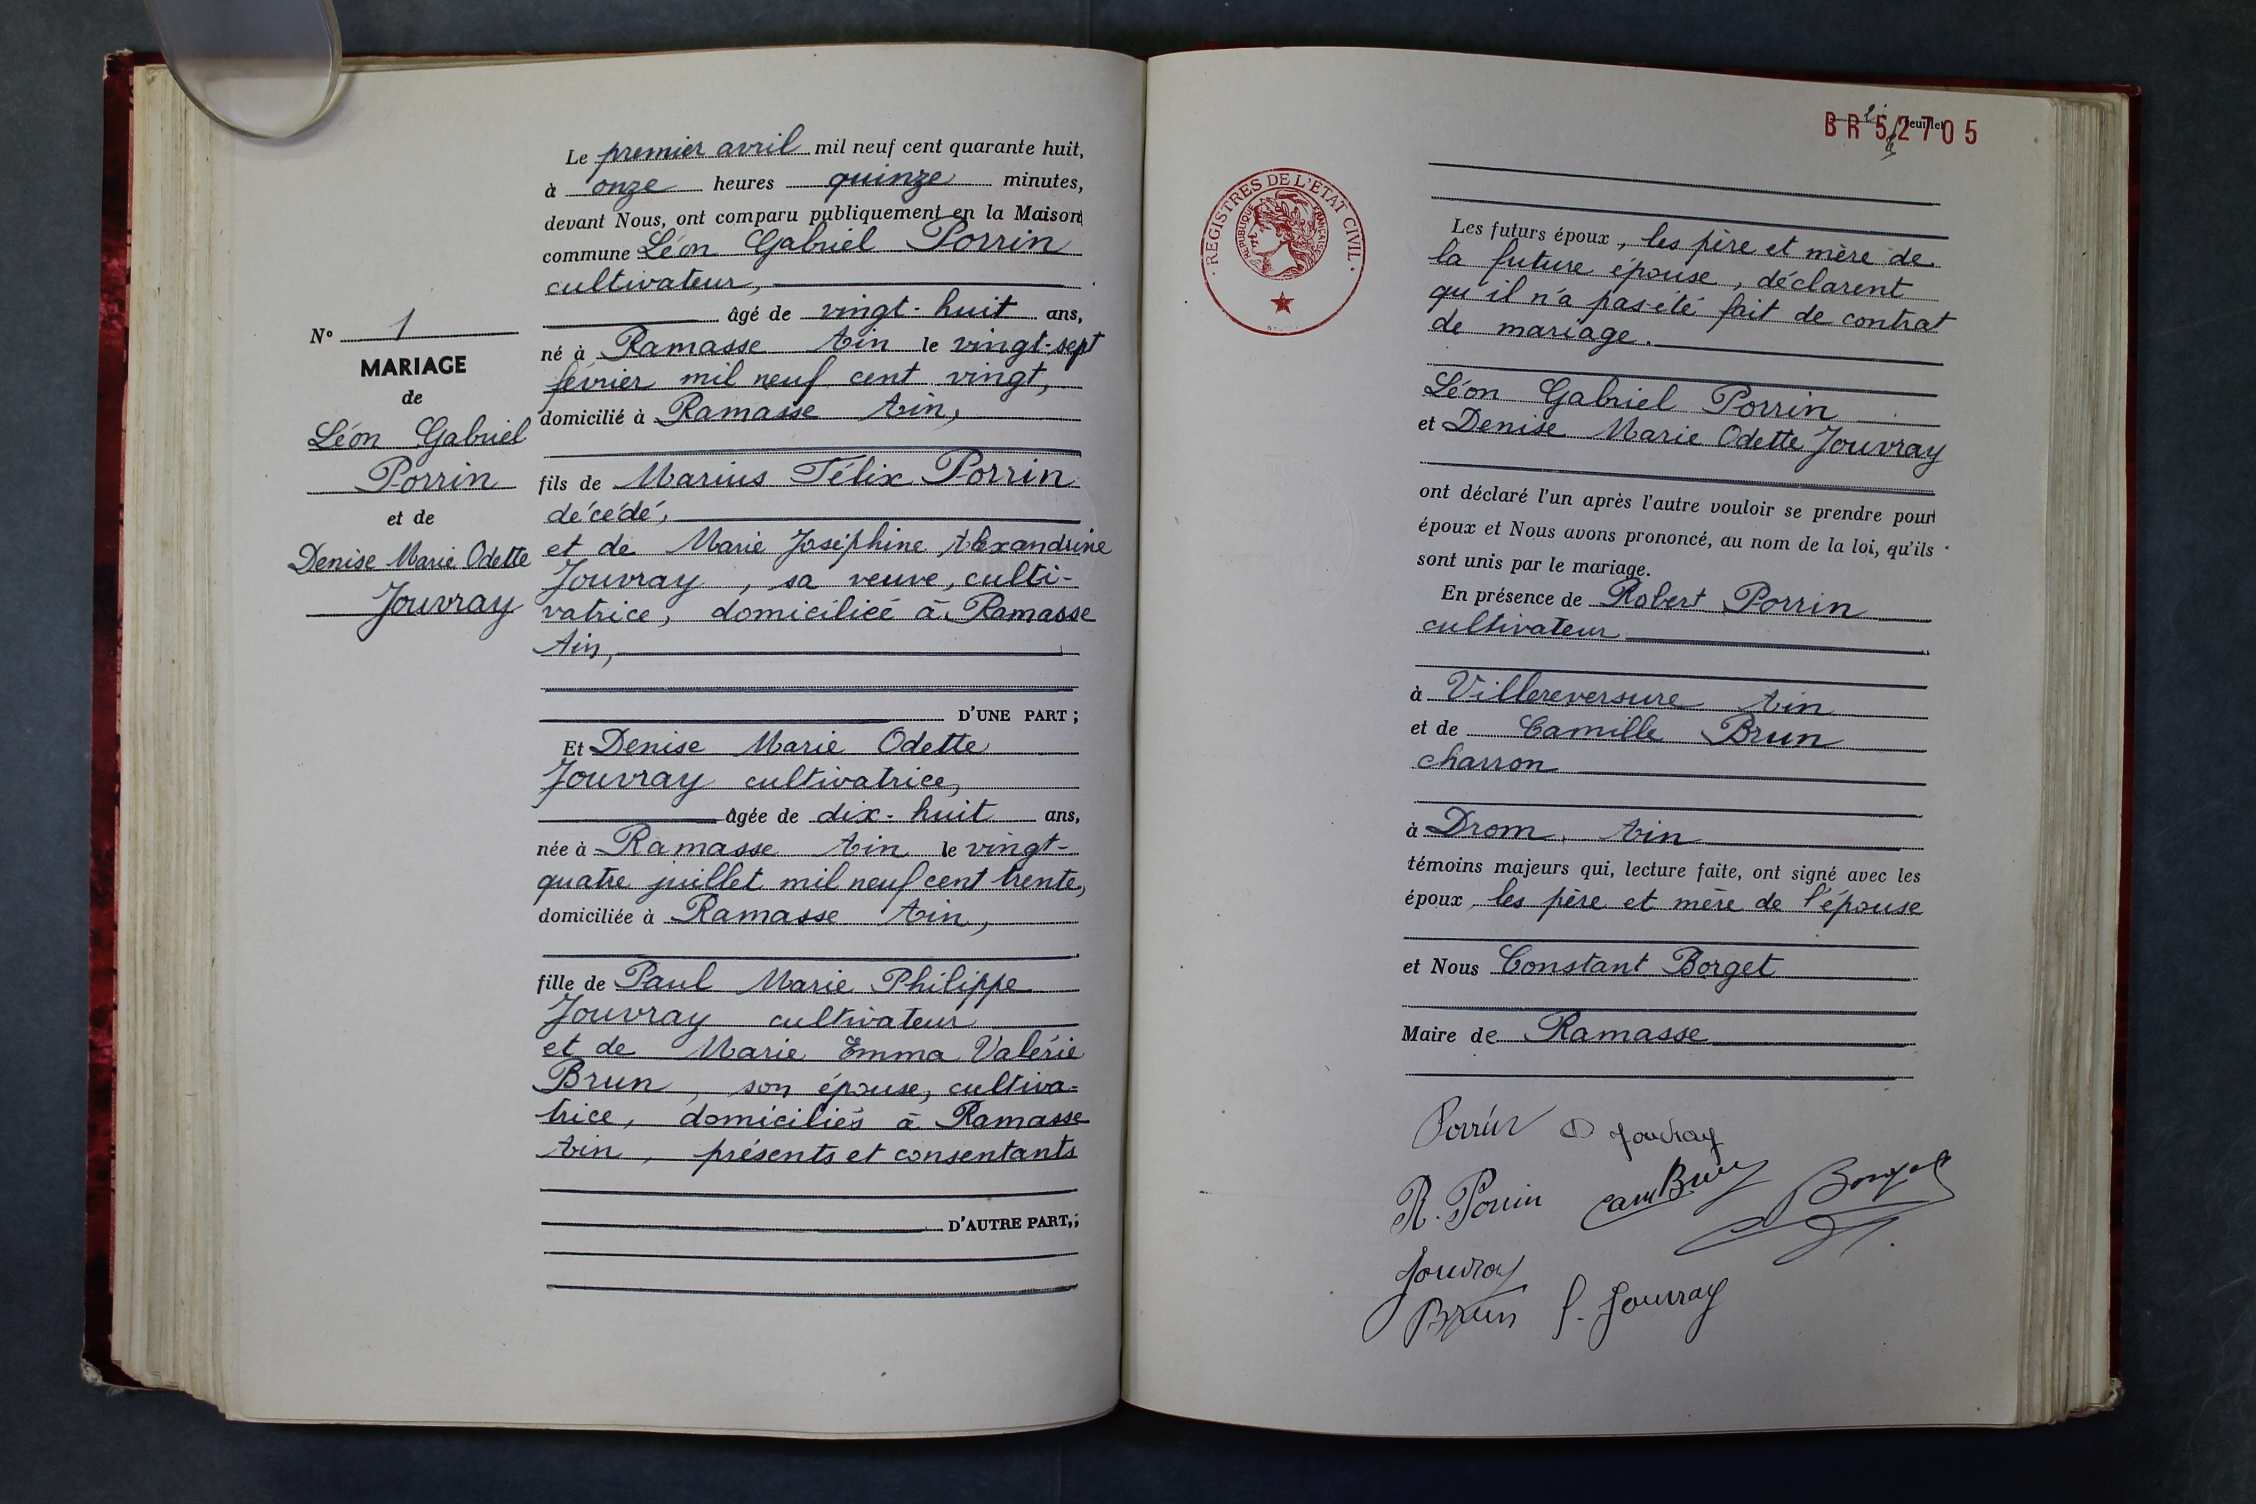 N° 1
MARIAGE
de
Léon Gabriel
Porrin
et de
Denise Marie Odette
Jouvray
Le premier avril mil neuf cent quarante huit,
à onze heures quinze minutes,
devant Nous, ont comparu publiquement en la Maison
commune Léon Gabriel Porrin
cultivateur,
âgé de vingt-huit ans,
né à Ramasse Ain le vingt-sept
février mil neuf cent vingt,
domicilié à Ramasse Ain,
fils de Marius Félix Porrin
décédé,
et de Marie Joséphine Alexandrine
Jouvray, sa veuve, culti-
vatrice, domiciliée à Ramasse
Ain,
D'UNE PART ;
Et Denise Marie Odette
Jouvray cultivatrice,
âgée de dix-huit ans,
née à Ramasse Ain le vingt-
quatre juillet mil neuf cent trente,
domiciliée à Ramasse Ain,
fille de Paul Marie Philippe
Jouvray cultivateur
et de Marie Emma Valérie
Brun, son épouse, cultiva-
trice, domiciliés à Ramasse
Ain, présents et consentants
D'AUTRE PART,;
BR 52705
feuillet
REGISTRES DE L'ETAT CIVIL
REPUBLIQUE FRANÇAISE
Les futurs époux, les père et mère de
la future épouse, déclarent
qu'il n'a pas été fait de contrat
de mariage.
Léon Gabriel Porrin
et Denise Marie Odette Jouvray
ont déclaré l'un après l'autre vouloir se prendre pour
époux et Nous avons prononcé, au nom de la loi, qu'ils
sont unis par le mariage.
En présence de Robert Porrin
cultivateur
à Villereversure Ain
et de Camille Brun
charron
à Drom Ain
témoins majeurs qui, lecture faite, ont signé avec les
époux, les père et mère de l'épouse
et Nous Constant Borget
Maire de Ramasse
Porrin D Jouvray
R. Porrin Cam Brun Borget
Jouvray
Brun P. Jouvray